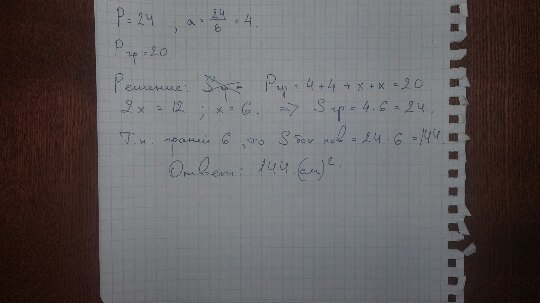 P = 24 ; a = 24/6 = 4.
P гр = 20
Решение: S гр = P гр = 4 + 4 + x + x = 20
2x = 12 ; x = 6. => S гр = 4 · 6 = 24.
Т.к. граней 6, то S бок пов = 24 · 6 = 144.
Ответ: 144 (см)².